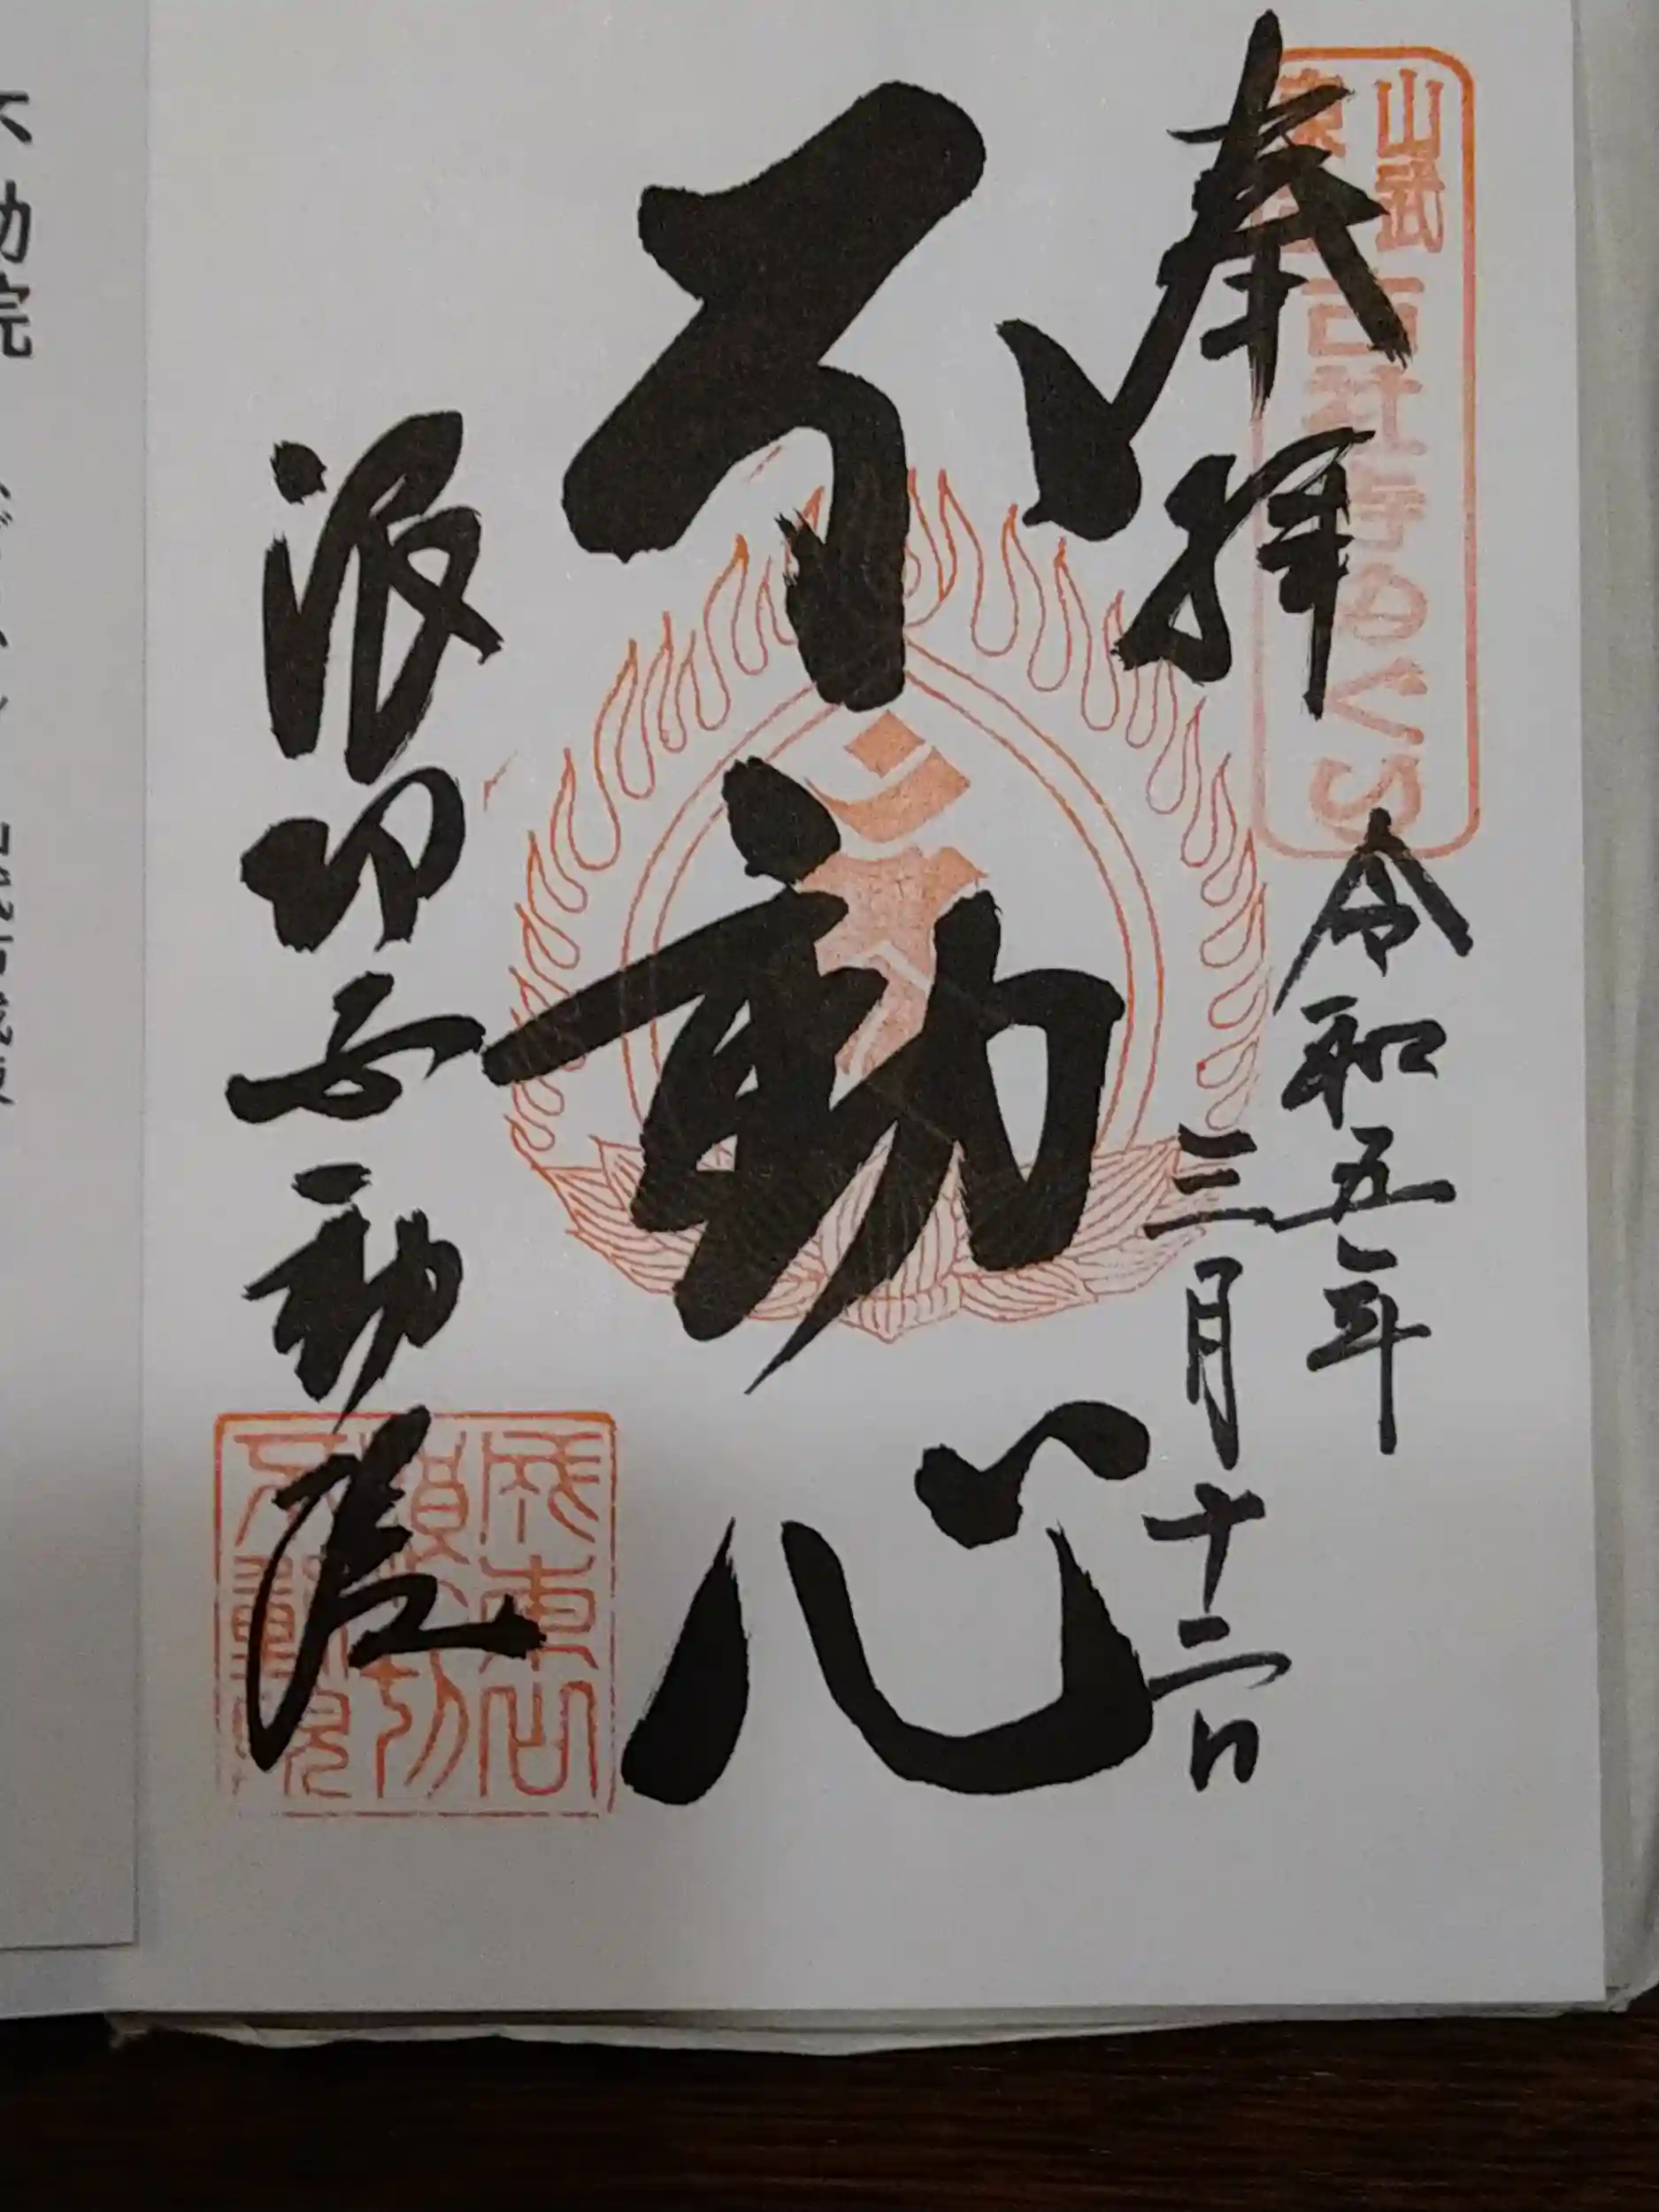 奉拝
令和五年
三月十二日
不動心
浪切不動院
山武
古社寺めぐり
成東山
浪切
不動院